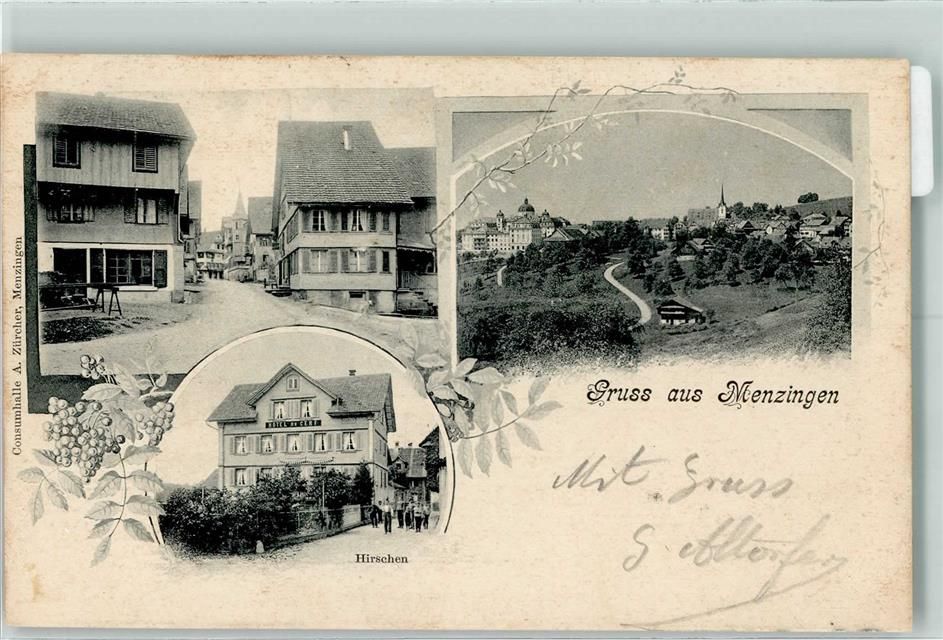 Consumhalle A. Zürcher, Menzingen
HÔTEL DU CERF
Gruss aus Menzingen
Hirschen
Mit Gruss